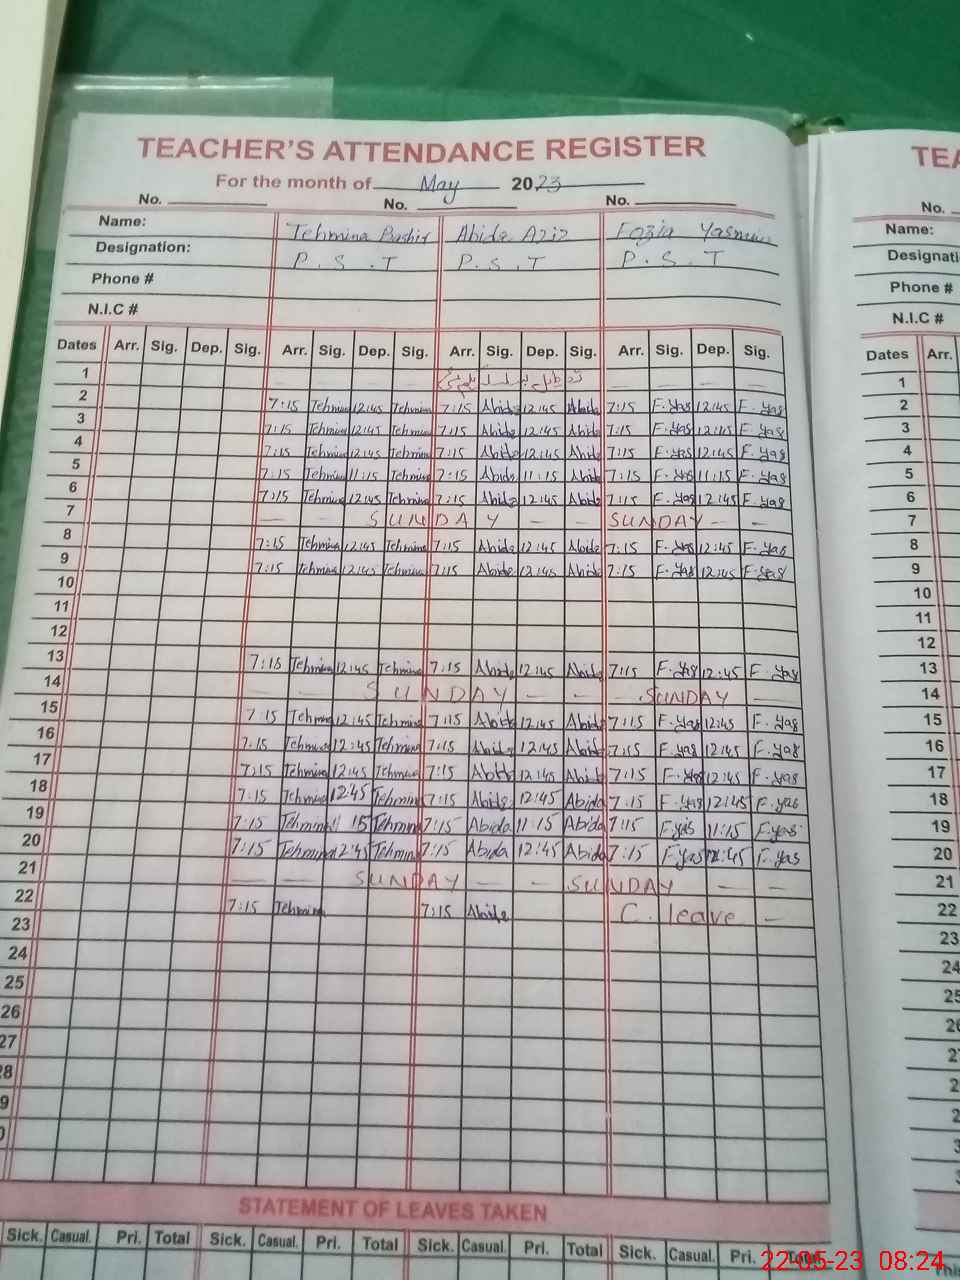 TEACHER'S ATTENDANCE REGISTER
For the month of May 2023
No. No. No.
Name: Tehmina Bashir Abida Aziz Fozia Yasmin
Designation: P.S.T P.S.T P.S.T
Phone #
N.I.C #
Dates Arr. Sig. Dep. Sig. Arr. Sig. Dep. Sig. Arr. Sig. Dep. Sig. Arr. Sig. Dep. Sig.
1 — — — —
2 7:15 Tehmina 12:45 Tehmina 7:15 Abida 12:45 Abida 7:15 F.Yas 12:45 F.Yas
3 7:15 Tehmina 12:45 Tehmina 7:15 Abida 12:45 Abida 7:15 F.Yas 12:45 F.Yas
4 7:15 Tehmina 12:45 Tehmina 7:15 Abida 12:45 Abida 7:15 F.Yas 12:45 F.Yas
5 7:15 Tehmina 11:15 Tehmina 7:15 Abida 11:15 Abida 7:15 F.Yas 11:15 F.Yas
6 7:15 Tehmina 12:45 Tehmina 7:15 Abida 12:45 Abida 7:15 F.Yas 12:45 F.Yas
7 — — SUNDAY — — SUNDAY — —
8 7:15 Tehmina 12:45 Tehmina 7:15 Abida 12:45 Abida 7:15 F.Yas 12:45 F.Yas
9 7:15 Tehmina 12:45 Tehmina 7:15 Abida 12:45 Abida 7:15 F.Yas 12:45 F.Yas
10
11
12
13 7:15 Tehmina 12:45 Tehmina 7:15 Abida 12:45 Abida 7:15 F.Yas 12:45 F.Yas
14 — — SUNDAY — — SUNDAY
15 7:15 Tehmina 12:45 Tehmina 7:15 Abida 12:45 Abida 7:15 F.Yas 12:45 F.Yas
16 7:15 Tehmina 12:45 Tehmina 7:15 Abida 12:45 Abida 7:15 F.Yas 12:45 F.Yas
17 7:15 Tehmina 12:45 Tehmina 7:15 Abida 12:45 Abida 7:15 F.Yas 12:45 F.Yas
18 7:15 Tehmina 12:45 Tehmina 7:15 Abida 12:45 Abida 7:15 F.Yas 12:45 F.Yas
19 7:15 Tehmina 11:15 Tehmina 7:15 Abida 11:15 Abida 7:15 F.yas 11:15 F.yas
20 7:15 Tehmina 12:45 Tehmina 7:15 Abida 12:45 Abida 7:15 F.yas 12:45 F.yas
21 — — SUNDAY — — SUNDAY — —
22 7:15 Tehmina 7:15 Abida C. leave —
23
24
25
26
27
28
9
0
STATEMENT OF LEAVES TAKEN
Sick. Casual. Pri. Total Sick. Casual. Pri. Total Sick. Casual. Pri. Total Sick. Casual. Pri. Total
TEA
No.
Name:
Designati
Phone #
N.I.C #
Dates Arr.
1
2
3
4
5
6
7
8
9
10
11
12
13
14
15
16
17
18
19
20
21
22
23
24
25
26
2
2
2
3
3
This
22-05-23 08:24